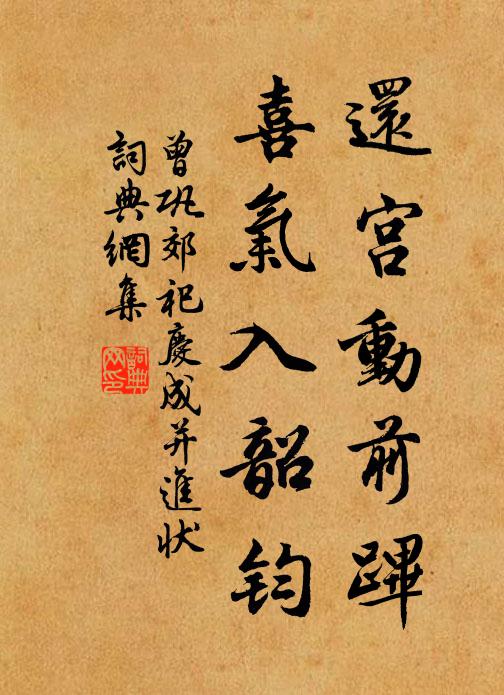 還宮動前蹕
喜氣入韶鈞
曾巩郊祀慶成并進狀
詞典網集
詞典網印